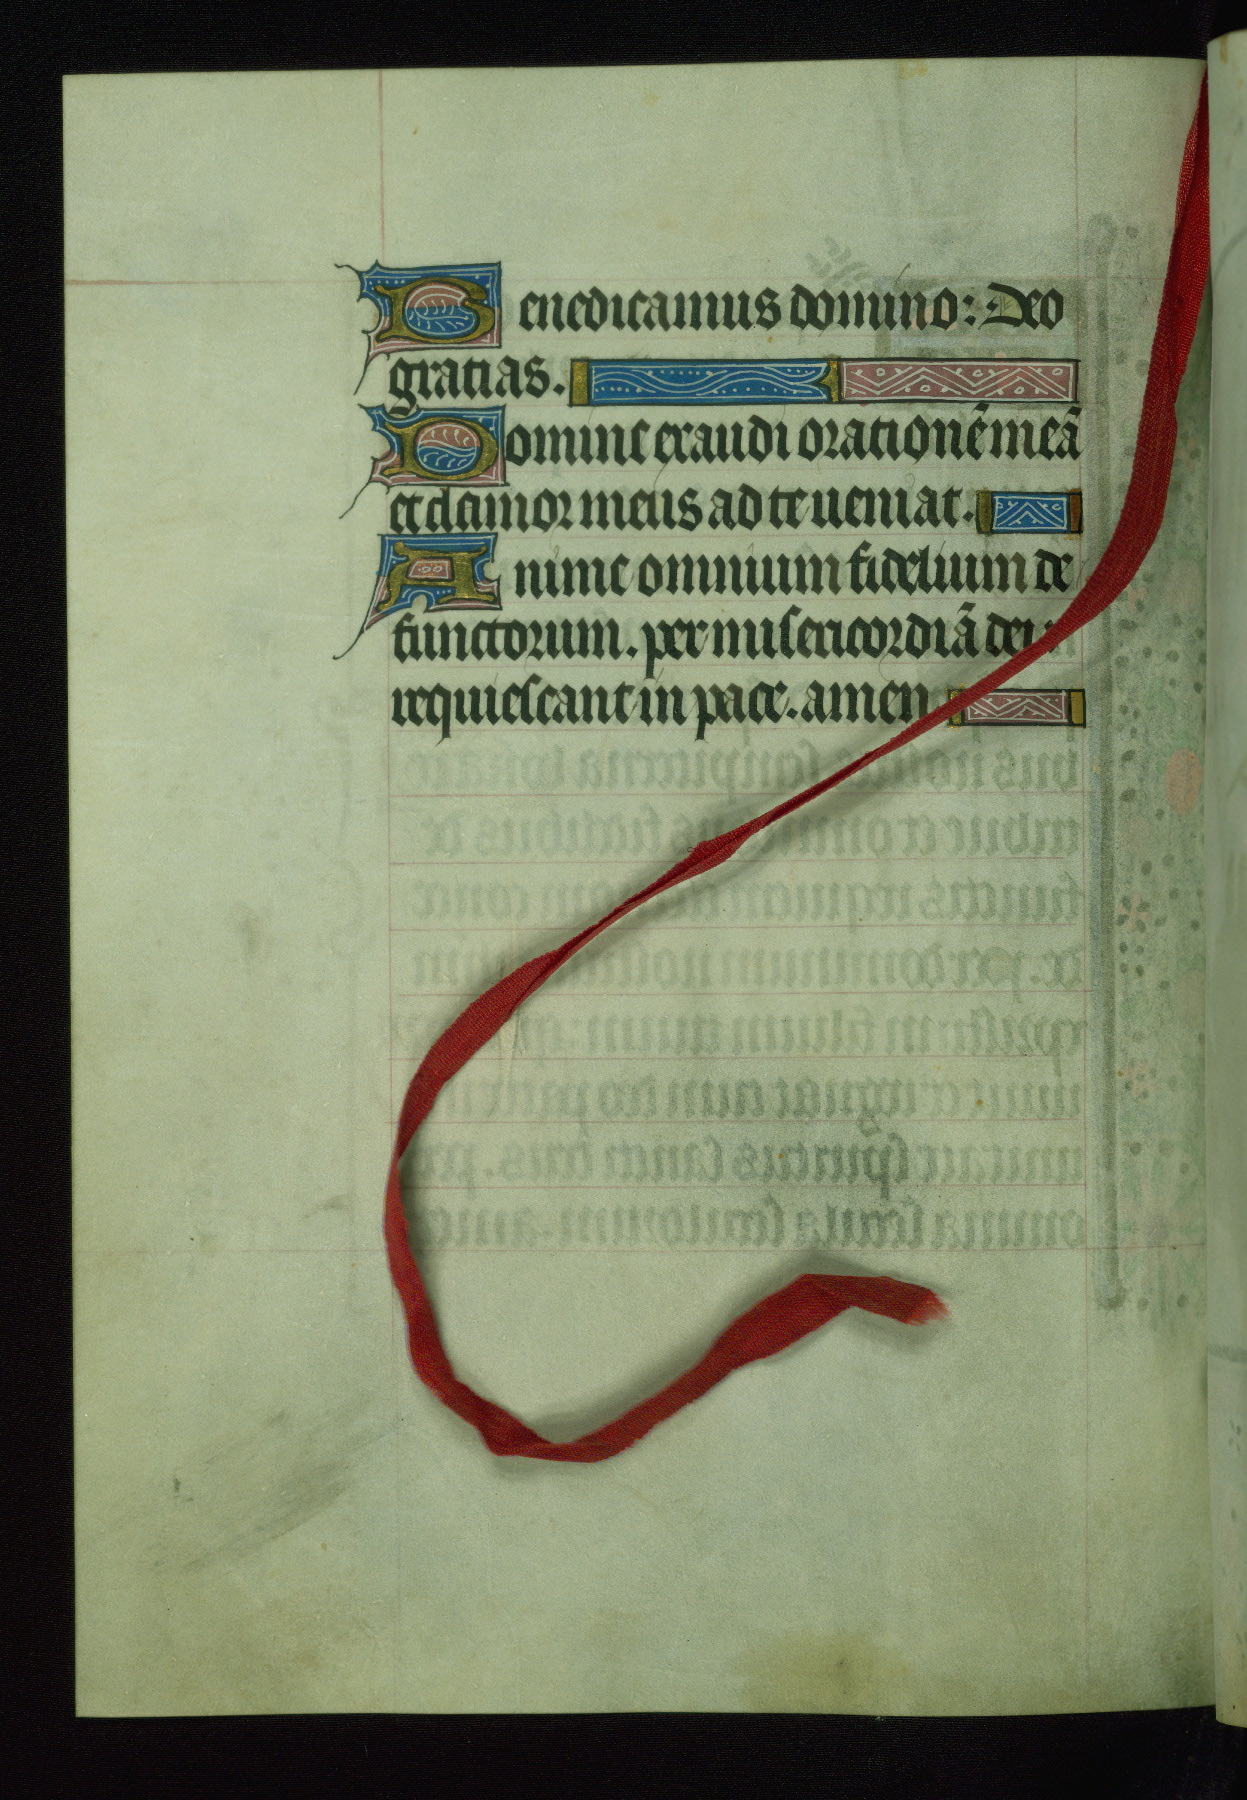 Benedicamus domino: Deo
gratias.
Domine exaudi orationẽ meã
et clamor meus ad te ueniat.
Anime omnium fidelium de
functorum. per misericordiã dei
requiescant in pace. amen